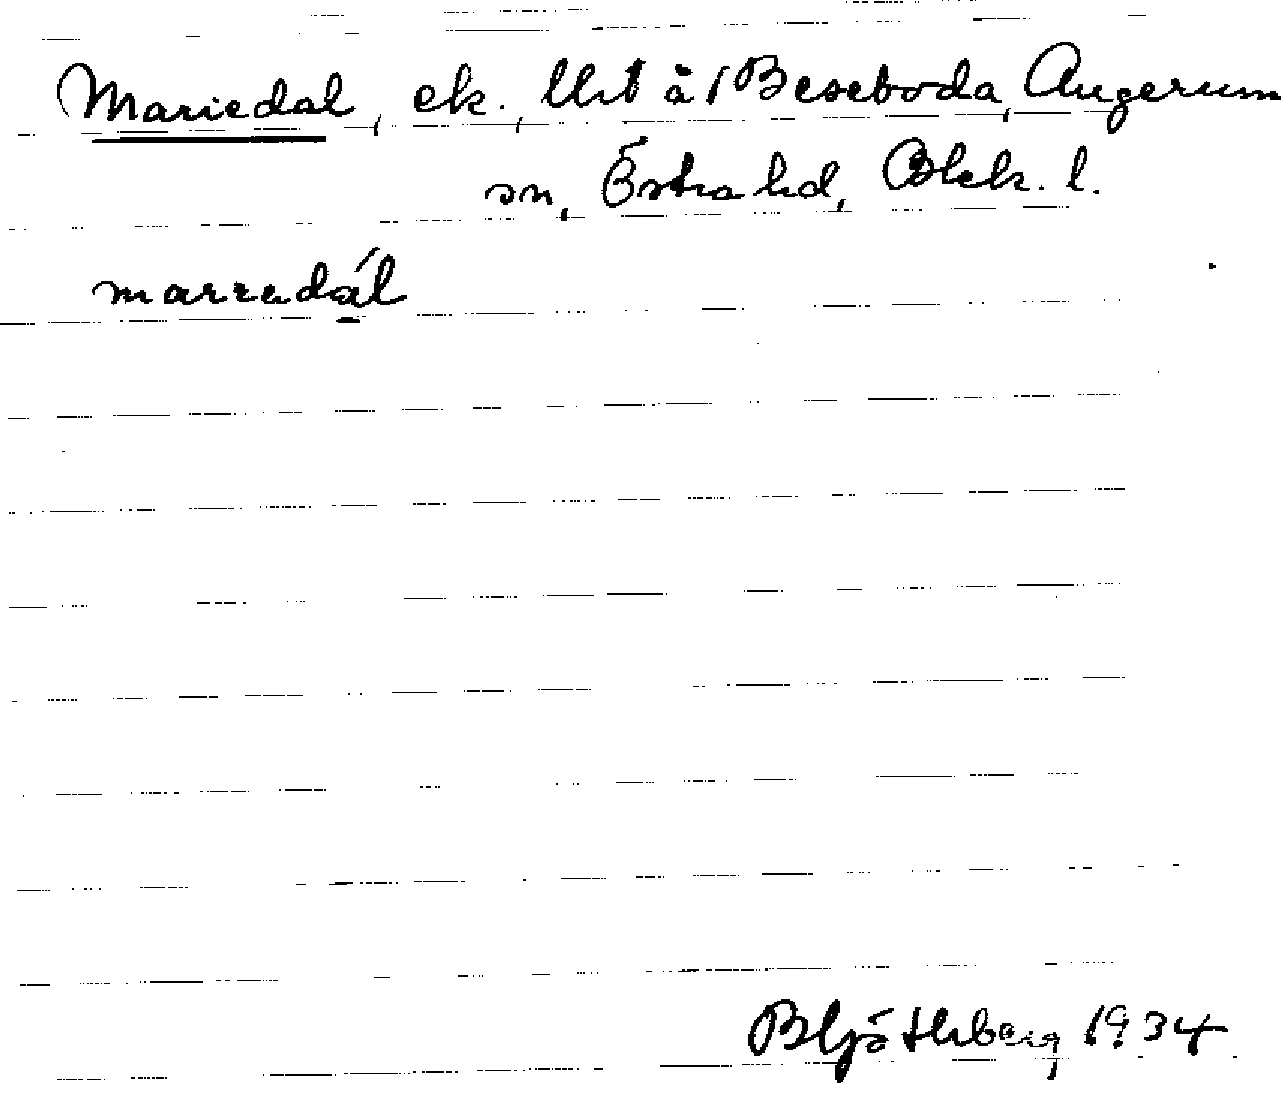 Mariedal, ek., lht å 1 Beseboda, Augerum
sn, Östra hd, Blek. l.
marredál
1934